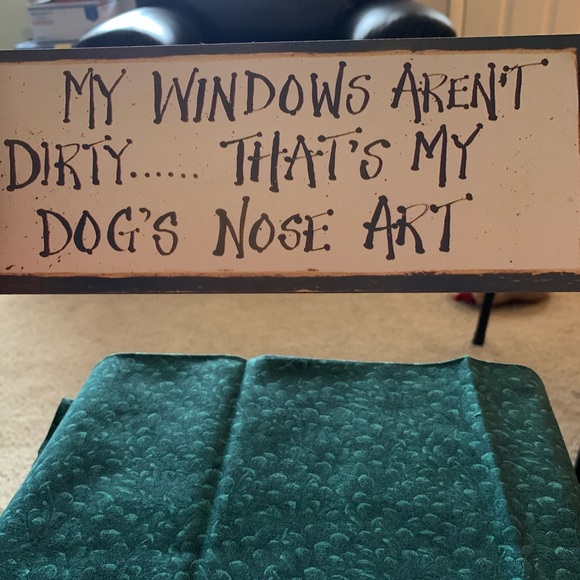 MY WINDOWS AREN'T
DIRTY...... THAT'S MY
DOG'S NOSE ART